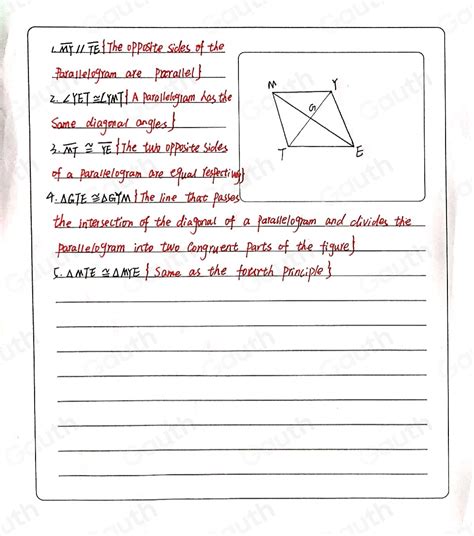 1. MT // TE {The opposite sides of the
Parallelogram are parallel}
2. ∠YET ≅ ∠YMT { A Parallelogram has the
Same diagonal angles}
3. MT ≅ YE {The two opposite sides
of a parallelogram are equal respectively}
4. △GTE ≅ △GYM {The line that Passes
the intersection of the diagonal of a parallelogram and divides the
parallelogram into two Congruent parts of the figure}
5. △MTE ≅ △MYE { Same as the fourth principle}
M
Y
G
T
E
Gauth